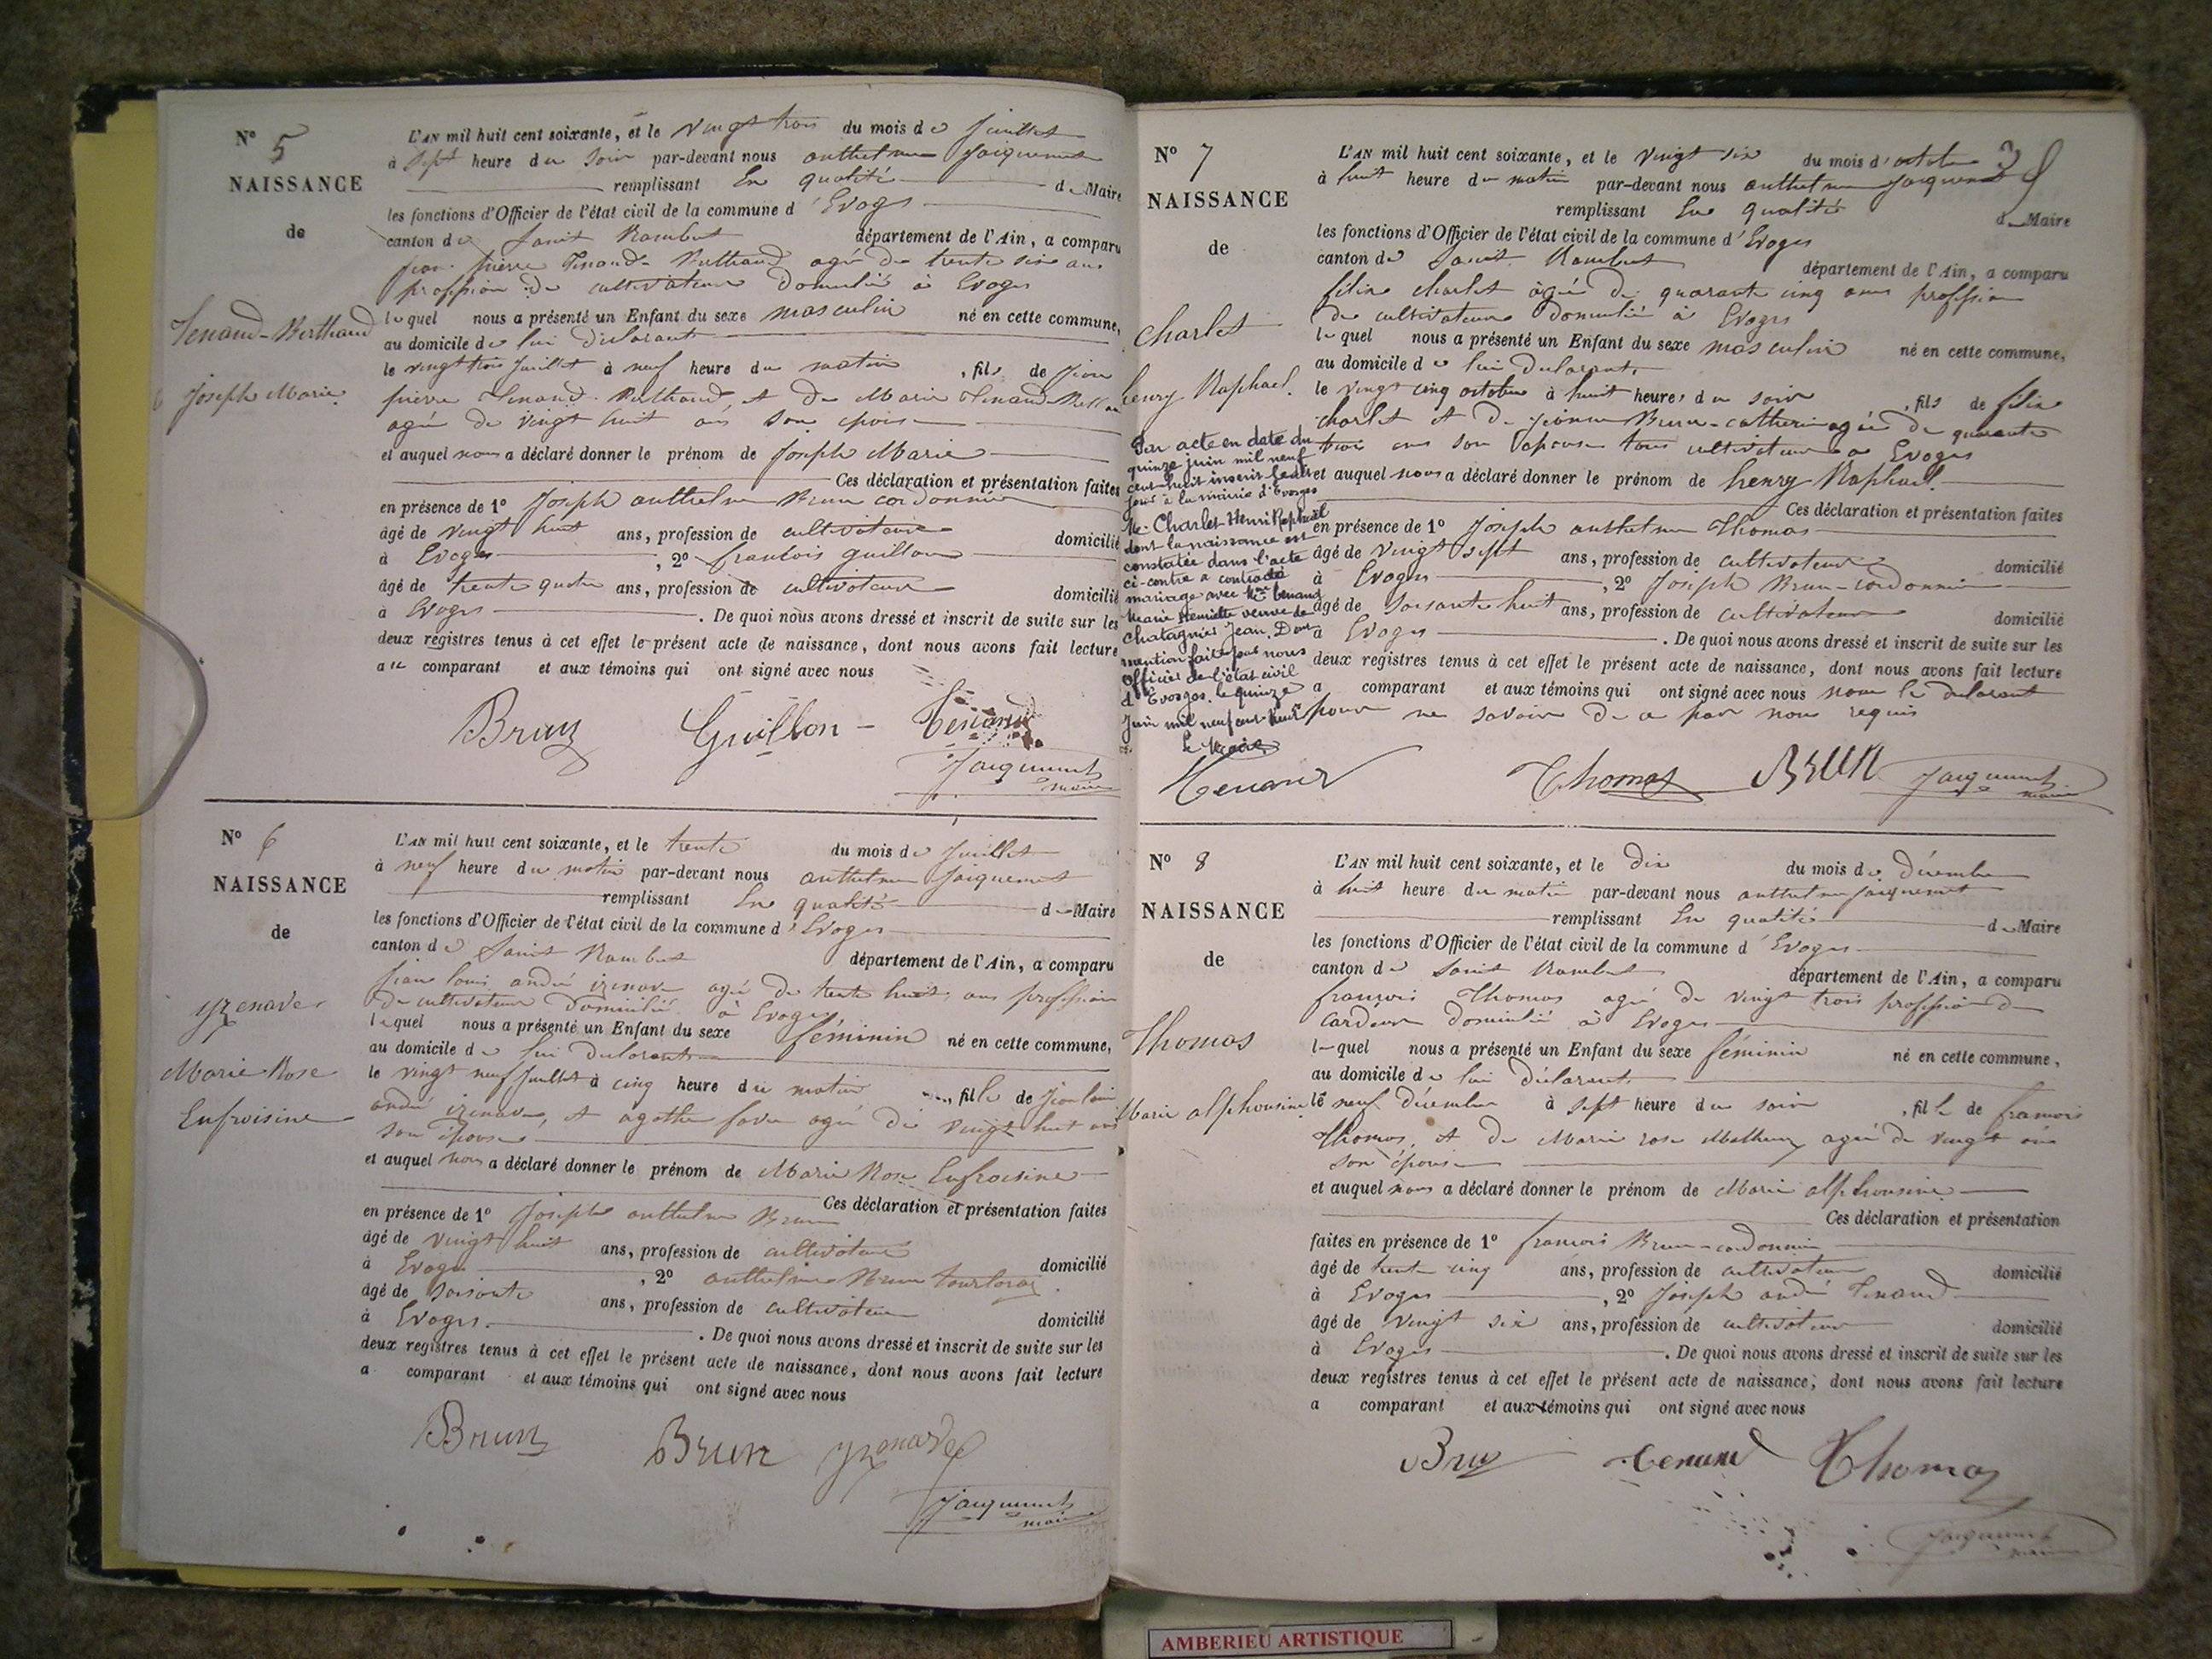 N° 5
NAISSANCE
de
Tenand-Berthand
Joseph Marie
L'AN mil huit cent soixante, et le vingt trois du mois de Juillet
à sept heure du soir par-devant nous anthelme Jacquemet
remplissant En qualité de Maire
les fonctions d'Officier de l'état civil de la commune d'Evoges
canton de Saint Rambert département de l'Ain, a comparu
pierre Tenand-Berthand agé de trente six ans
profession de cultivateur domicilié à Evoges
lequel nous a présenté un Enfant du sexe masculin né en cette commune,
au domicile de lui declarant
le vingt trois Juillet à neuf heure du matin, fils de Jean
pierre Tenand-Berthand, et de Marie Tenand
agée de vingt huit ans son epouse
et auquel nous a déclaré donner le prénom de Joseph Marie
Ces déclaration et présentation faites
en présence de 1° Joseph anthelme Brun cordonnier
âgé de vingt huit ans, profession de cultivateur domicilié
à Evoges, 2° francois guillon
âgé de trente quatre ans, profession de cultivateur domicilié
à Evoges. De quoi nous avons dressé et inscrit de suite sur les
deux registres tenus à cet effet le présent acte de naissance, dont nous avons fait lecture
au comparant et aux témoins qui ont signé avec nous
Brun Guillon Tenand
Jacquemet
maire
N° 6
NAISSANCE
de
yzenave
Marie Rose
Enfroisine
L'AN mil huit cent soixante, et le trente du mois de Juillet
à neuf heure du matin par-devant nous anthelme Jacquemet
remplissant En qualité de Maire
les fonctions d'Officier de l'état civil de la commune d'Evoges
canton de Saint Rambert département de l'Ain, a comparu
jean louis andré izenave agé de trente huit ans profession
de cultivateur domicilié à Evoges
lequel nous a présenté un Enfant du sexe féminin né en cette commune,
au domicile de lui declarant
le vingt neuf Juillet à cinq heure du matin, fille de Jean louis
andré izenave, et agathe favre agée de vingt huit ans
son épouse
et auquel nous a déclaré donner le prénom de Marie Rose Enfroisine
Ces déclaration et présentation faites
en présence de 1° Joseph anthelme Brun
âgé de vingt huit ans, profession de cultivateur domicilié
à Evoges, 2° anthelme Brun
âgé de soisante ans, profession de cultivateur domicilié
à Evoges. De quoi nous avons dressé et inscrit de suite sur les
deux registres tenus à cet effet le présent acte de naissance, dont nous avons fait lecture
a comparant et aux témoins qui ont signé avec nous
Brun Brun
Jacquemet
maire
N° 7
NAISSANCE
de
Charlet
henry Raphael.
Par acte en date du
quinze juin mil neuf
cent huit inscrit le dit
jour à la mairie d'Evosges
Mr Charlet Henri Raphaël
dont la naissance est
constatée dans l'acte
ci-contre a contracté
mariage avec Mme Tenand
Marie Henriette veuve de
Chatagnier Jean. Dont
mention faite par nous
officier de l'état civil
d'Evosges, le quinze
Juin mil neuf cent huit
Le Maire,
Tenand
L'AN mil huit cent soixante, et le vingt six du mois d'octobre
à huit heure du matin par-devant nous anthelme Jacquemet
remplissant En qualité de Maire
les fonctions d'Officier de l'état civil de la commune d'Evoges
canton de Saint Rambert département de l'Ain, a comparu
félix charlet âgé de quarante cinq ans profession
de cultivateur domicilié à Evoges
lequel nous a présenté un Enfant du sexe masculin né en cette commune,
au domicile de lui declarant
le vingt cinq octobre à huit heures du soir, fils de félix
charlet et de jeanne Brun-catherin agée de quarante
trois ans son epouse tous cultivateur a Evoges
et auquel nous a déclaré donner le prénom de henry Raphael.
Ces déclaration et présentation faites
en présence de 1° Joseph anthelme Thomas
âgé de vingt sept ans, profession de cultivateur domicilié
à Evoges, 2° Joseph Brun-cordonnier
âgé de soisante huit ans, profession de cultivateur domicilié
à Evoges. De quoi nous avons dressé et inscrit de suite sur les
deux registres tenus à cet effet le présent acte de naissance, dont nous avons fait lecture
a comparant et aux témoins qui ont signé avec nous non le declarant
pour ne savoir de ce par nous requis
Thomas BRUN Jacquemet
maire
N° 8
NAISSANCE
de
Thomas
Marie alphonsine
L'AN mil huit cent soixante, et le dix du mois de décembre
à huit heure du matin par-devant nous anthelme jacquemet
remplissant En qualité de Maire
les fonctions d'Officier de l'état civil de la commune d'Evoges
canton de Saint Rambert département de l'Ain, a comparu
françois Thomas agé de vingt trois profession de
cardeur domicilié à Evoges
lequel nous a présenté un Enfant du sexe féminin né en cette commune,
au domicile de lui déclarant
le neuf décembre à sept heure du soir, fille de francois
Thomas, et de Marie rose agée de vingt ans
son épouse
et auquel nous a déclaré donner le prénom de Marie alphonsine
Ces déclaration et présentation
faites en présence de 1° francois Brun-cordonnier
âgé de trente cinq ans, profession de cultivateur domicilié
à Evoges, 2° Joseph andré Tenand
âgé de vingt six ans, profession de cultivateur domicilié
à Evoges. De quoi nous avons dressé et inscrit de suite sur les
deux registres tenus à cet effet le présent acte de naissance, dont nous avons fait lecture
a comparant et aux témoins qui ont signé avec nous
Brun Tenand Thomas
Jacquemet
maire
AMBERIEU ARTISTIQUE